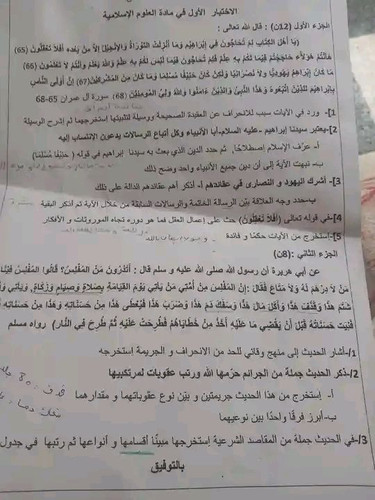 الاختبار الأول في مادة العلوم الإسلامية
الجزء الأول (12ن) : قال الله تعالى :
(يَا أَهْلَ الْكِتَابِ لِمَ تُحَاجُّونَ فِي إِبْرَاهِيمَ وَمَا أُنزِلَتِ التَّوْرَاةُ وَالْإِنْجِيلُ إِلَّا مِنْ بَعْدِهِ أَفَلَا تَعْقِلُونَ (65)
هَاأَنْتُمْ هَؤُلَاءِ حَاجَجْتُمْ فِيمَا لَكُمْ بِهِ عِلْمٌ فَلِمَ تُحَاجُّونَ فِيمَا لَيْسَ لَكُمْ بِهِ عِلْمٌ وَاللَّهُ يَعْلَمُ وَأَنْتُمْ لَا تَعْلَمُونَ (66)
مَا كَانَ إِبْرَاهِيمُ يَهُودِيًّا وَلَا نَصْرَانِيًّا وَلَكِنْ كَانَ حَنِيفًا مُسْلِمًا وَمَا كَانَ مِنَ الْمُشْرِكِينَ (67) إِنَّ أَوْلَى النَّاسِ
بِإِبْرَاهِيمَ لَلَّذِينَ اتَّبَعُوهُ وَهَذَا النَّبِيُّ وَالَّذِينَ ءَامَنُوا وَاللَّهُ وَلِيُّ الْمُؤْمِنِينَ (68) سورة آل عمران 65-68
1- ورد في الآيات سبب للانحراف عن العقيدة الصحيحة ووسيلة لتثبيتها استخرجهما ثم اشرح الوسيلة
2-يعتبر سيدنا إبراهيم -عليه السلام-أبا الأنبياء وكل أتباع الرسالات يدعون الإنتساب إليه
أ- عرّف الإسلام اصطلاحًا، ثم حدد الدين الذي بعث به سيدنا إبراهيم في قوله ( حَنِيفًا مُسْلِمًا)
ب- نبهت الآية إلى أن دين جميع الأنبياء واحد وضح ذلك
3- أشرك اليهود و النصارى في عقائدهم أ- أذكر أهم عقائدهم الدالة على ذلك
ب-حدد وجه العلاقة بين الرسالة الخاتمة والرسالات السابقة من خلال الآية ثم أذكر البقية
4-في قوله تعالى (أَفَلَا تَعْقِلُونَ) حث على إعمال العقل فما هو دوره تجاه الموروثات والأفكار
5-إستخرج من الآيات حكمًا و فائدة
الجزء الثاني: (8ن)
عن أبي هريرة أن رسول الله صلى الله عليه و سلم قال : أتدرون من المفلس؟ قالوا المفلس فينا
من لا درهم له ولا متاع فقال :إن المفلس من أمتي من يأتي يوم القيامة بصلاة وصيام وزكاة, ويأتي
شتم هذا وقذف هذا وأكل مال هذا وسفك دم هذا وضرب هذا فيعطى هذا من حسناته وهذا من حسناته
فنيت حسناته قبل أن يقضي ما عليه أخذ من خطاياهم فطرحت عليه ثم طرح في النار) رواه مسلم
1/-أشار الحديث إلى منهج وقائي للحد من الانحراف و الجريمة إستخرجه
2/-ذكر الحديث جملة من الجرائم حرّمها الله ورتب عقوبات لمرتكبيها
أ- إستخرج من هذا الحديث جريمتين و بيّن نوع عقوباتهما و مقدارهما
ب-أبرز فرقًا واحدًا بين نوعيهما
3/-في الحديث جملة من المقاصد الشرعية إستخرجها مبينًا أقسامها و أنواعها ثم رتبها في جدول
بالتوفيق